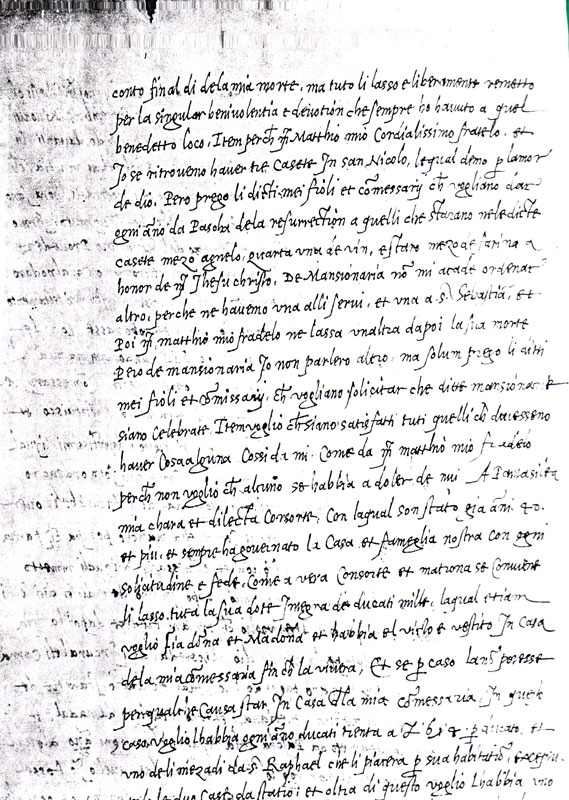 conto final di dela mia morte, ma tuto li lasso e liberamente remetto
per la singular benivolentia e devotion che sempre ho havuto a quel
benedetto loco. Item perch m Matthio mio Cordialissimo fratelo, et
Jo se ritroveno haver tre Casete Jn san Nicolo, le qual demo p lamor
de dio. Pero prego li dicti mei fioli et comessarij ch vogliano dar
ogni año da Pascha dela resurrection a quelli che starano nele dicte
casete mezo agnelo, quarta una de vin, e staro mezo de farina a
honor de m Jhesu christo. De Mansionaria no mi acade ordenar
altro, perche ne havemo una alli servi, et una a s. Sebastia, et
Poi m matthio mio fradelo ne lassa unaltra dapoi la sua morte
Pero de mansionaria Jo non parlero altro, ma solum prego li ditti
mei fioli et comissarij, ch vogliano solicitar che ditte mansionar
siano Celebrate Item voglio ch siano satisfatti tuti quelli ch devesseno
haver Cosa alguna Cossi da mi, Come da m matthio mio fradelo
perch non voglio ch alcuno se habbia a doler de nui A Pantasilea
mia chara et dilecta Consorte, Con laqual son stato gia ani 40.
et piu, et sempre ha governato la Casa et fameglia nostra con ogni
solicitudine e fede, Come a vera Consorte et matrona se Conviene
li lasso tuta la sua dote Jntegra de ducati mille, laqual etiam
voglio sia dona et Madona et habbia el victo e vestito Jn Casa
dela mia comessaria fin ch la vivera, Et se p caso la no potesse
per qualche Causa star Jn Casa dla mia comessaria Jn questo
caso voglio lhabbia ogni año ducati trenta a £ 6 s 4 p ducato, et
uno deli mezadi da s. Raphael che li piacera p sua habitation,
le due Case da statio; et oltra di questo voglio Lhabbia uno